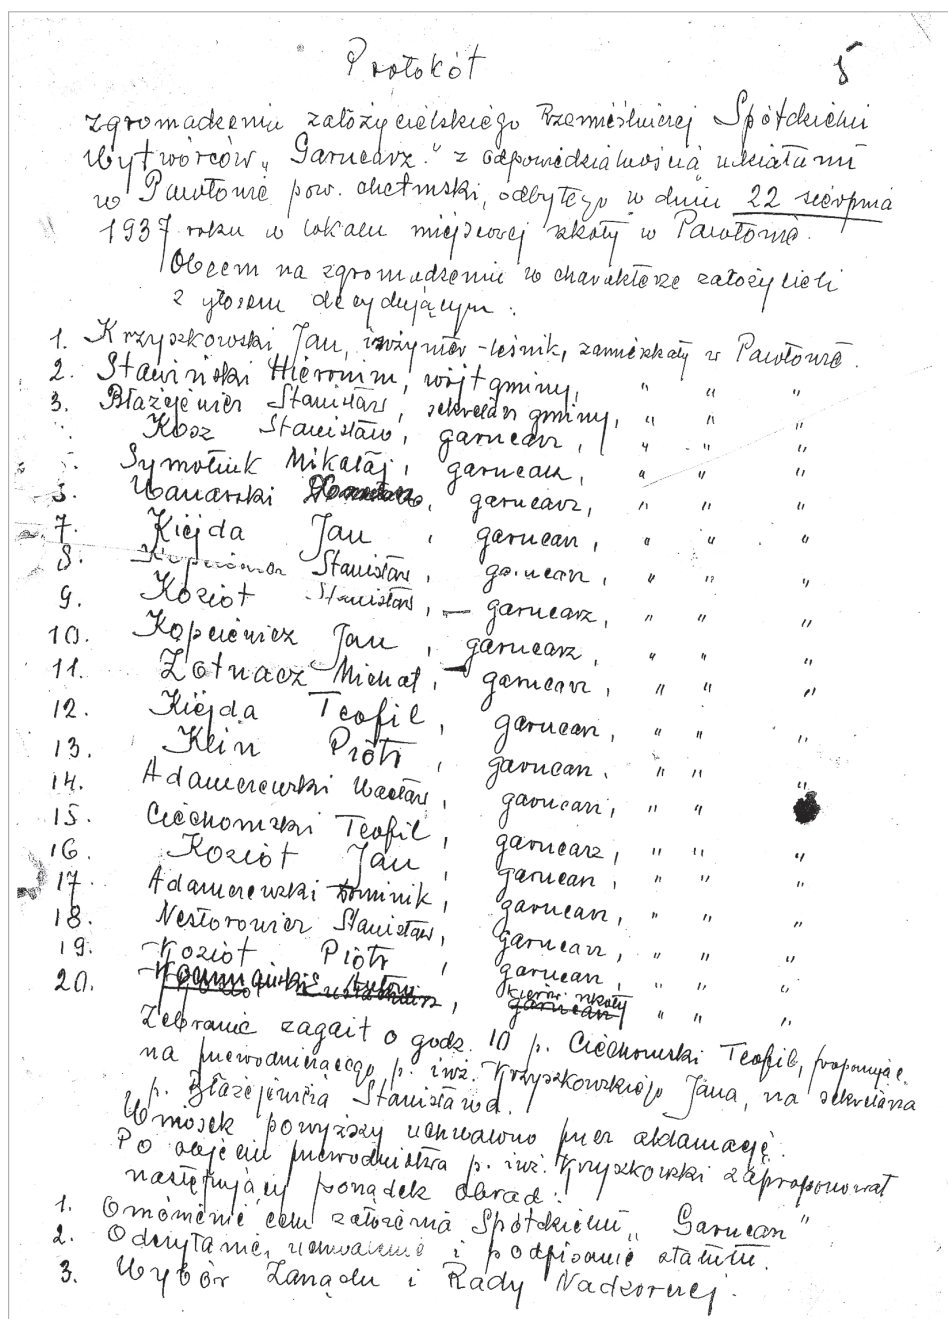 Protokół
5
zgromadzenia założycielskiego Rzemieślniczej Spółdzielni
Wytwórców „Garncarz" z odpowiedzialnością udziałami
w Pawłowie pow. chełmski, odbytego w dniu 22 sierpnia
1937 roku w lokalu miejscowej szkoły w Pawłowie.
Obecni na zgromadzeniu w charakterze założycieli
z głosem decydującym:
1. Krzyszkowski Jan, inżynier-leśnik, zamieszkały w Pawłowie.
2. Stawiński Hieronim, wójt gminy, " " "
3. Błażejewicz Stanisław, sekretarz gminy, " " "
Kosz Stanisław, garncarz, " " "
Symotiuk Mikołaj, garncarz, " " "
Banarski garncarz, " " "
7. Kiejda Jan, garncarz, " " "
8. Kopciewicz Stanisław, garncarz, " " "
9. Kozioł Stanisław, — garncarz, " " "
10. Kopciewicz Jan, garncarz, " " "
11. Żołnacz Michał, garncarz, " " "
12. Kiejda Teofil, garncarz, " " "
13. Klin Piotr, garncarz, " " "
14. Adamczewski Wacław, garncarz, " "
15. Ciechomski Teofil, garncarz, " " "
16. Kozioł Jan, garncarz, " " "
17. Adamczewski Dominik, garncarz, " " "
18. Nestorowicz Stanisław, garncarz, " " "
19. Kozioł Piotr, garncarz, " " "
20. kierow. szkoły garncarz, " " "
Zebranie zagaił o godz. 10 p. Ciechomski Teofil, proponując
na przewodniczącego p. inż. Krzyszkowskiego Jana, na sekretarza
p. Błażejewicza Stanisława.
Wniosek powyższy uchwalono przez aklamację.
Po objęciu przewodnictwa p. inż. Krzyszkowski zaproponował
następujący porządek obrad:
1. Omówienie celu założenia Spółdzielni „Garncarz"
2. Odczytanie, uchwalenie i podpisanie statutu.
3. Wybór Zarządu i Rady Nadzorczej.